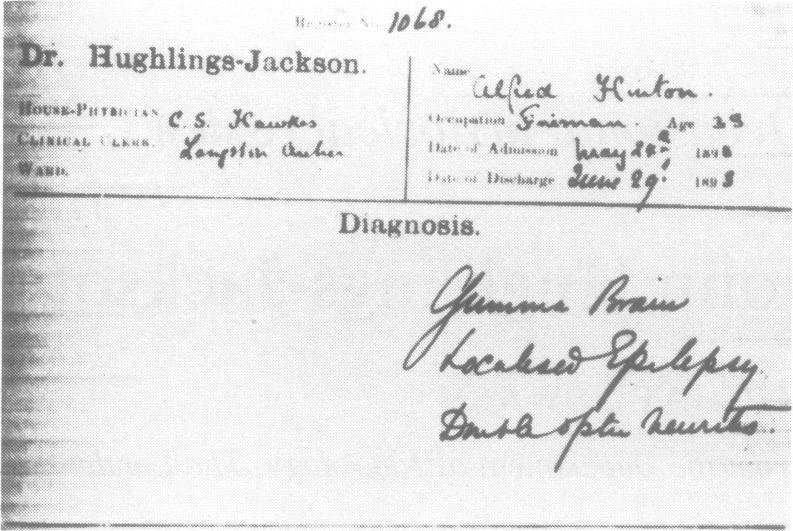 Register No. 1068.
Dr. Hughlings-Jackson.
HOUSE-PHYSICIAN C. S. Hawkes
CLINICAL CLERK.
WARD.
Name Alfred Hinton.
Occupation Fireman. Age 38
Date of Admission May 24 1893
Date of Discharge June 29 1893
Diagnosis.
Gumma Brain
Localised Epilepsy
Double optic neuritis.